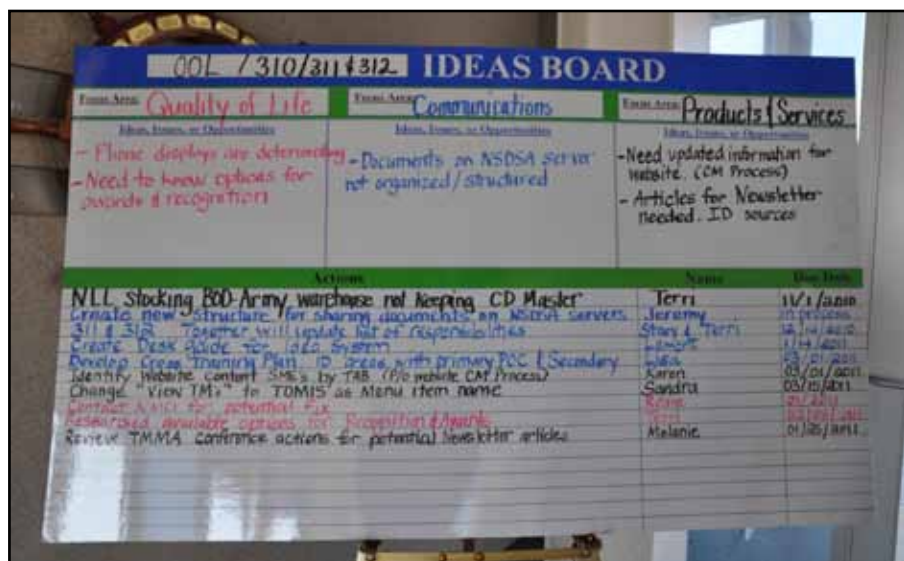 OOL / 310/311 & 312 IDEAS BOARD
Focus Area: Quality of Life
Ideas, Issues, or Opportunities
- Phone displays are deteriorating
- Need to know options for
awards & recognition
Focus Area: Communications
Ideas, Issues, or Opportunities
- Documents on NSDSA server
not organized / structured
Focus Area: Products & Services
Ideas, Issues, or Opportunities
- Need updated information for
website. (CM Process)
- Articles for Newsletter
needed. ID sources
Actions Name Due Date
NLL Stocking BOD-Army warehouse not keeping CD Master Terri 11/1/2010
Create new structure for sharing documents on NSDSA servers Jeremy in process
311 & 312 Together will update list of responsibilities & Terri
Create Desk Guide for System
Develop Cross Training Plan. ID areas with primary POC & Secondary Lisa
Identify Website content SMEs by (P/o website CM Process) Karen 03/01/2011
Change "View TMs" to TOMIS as Menu item name Sandra 03/15/2011
Contact NMCI for potential fix
Researched available options for Recognition & Awards
Review TMMA Conference actions for potential Newsletter articles Melanie 01/25/2011